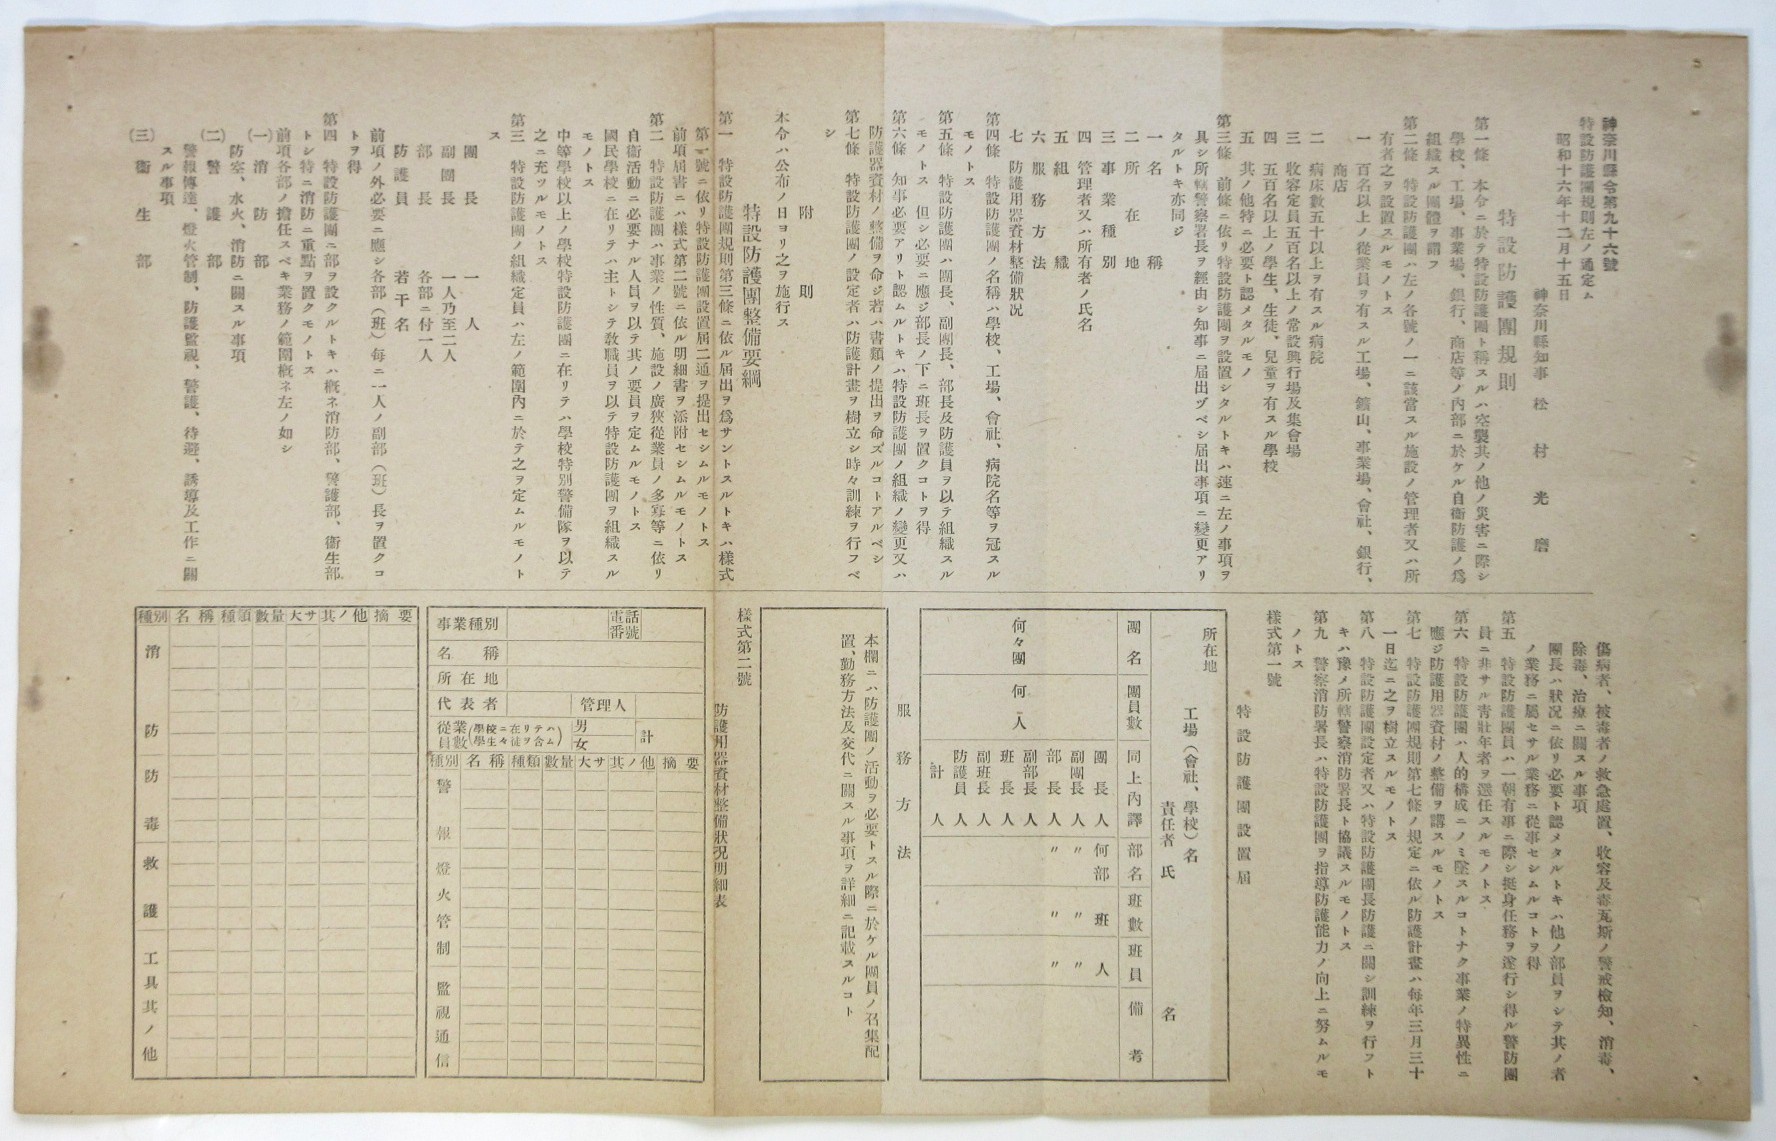 神奈川縣令第九十六號
特設防護團規則左ノ通定ム
昭和十六年十二月十五日
神奈川縣知事 松村光磨
特設防護團規則
第一條 本令ニ於テ特設防護團ト稱スルハ空襲其ノ他ノ災害ニ際シ
學校、工場、事業場、銀行、商店等ノ內部ニ於ケル自衞防護ノ爲
組織スル團體ヲ謂フ
第二條 特設防護團ハ左ノ各號ノ一ニ該當スル施設ノ管理者又ハ所
有者之ヲ設置スルモノトス
一 百名以上ノ從業員ヲ有スル工場、鑛山、事業場、會社、銀行、
商店
二 病床數五十以上ヲ有スル病院
三 收容定員五百名以上ノ常設興行場及集會場
四 五百名以上ノ學生、生徒、兒童ヲ有スル學校
五 其ノ他特ニ必要ト認メタルモノ
第三條 前條ニ依リ特設防護團ヲ設置シタルトキハ速ニ左ノ事項ヲ
具シ所轄警察署長ヲ經由シ知事ニ届出ヅベシ届出事項ニ變更アリ
タルトキ亦同ジ
一 名稱
二 所在地
三 事業種別
四 管理者又ハ所有者ノ氏名
五 組織
六 服務方法
七 防護用器資材整備狀況
第四條 特設防護團ノ名稱ハ學校、工場、會社、病院名等ヲ冠スル
モノトス
第五條 特設防護團ハ團長、副團長、部長及防護員ヲ以テ組織スル
モノトス 但シ必要ニ應ジ部長ノ下ニ班長ヲ置クコトヲ得
第六條 知事必要アリト認ムルトキハ特設防護團ノ組織ノ變更又ハ
防護器資材ノ整備ヲ命ジ若ハ書類ノ提出ヲ命ズルコトアルベシ
第七條 特設防護團ノ設定者ハ防護計畫ヲ樹立シ時々訓練ヲ行フベ
シ
附則
本令ハ公布ノ日ヨリ之ヲ施行ス
特設防護團整備要綱
第一 特設防護團規則第三條ニ依ル届出ヲ爲サントスルトキハ樣式
第一號ニ依リ特設防護團設置届二通ヲ提出セシムルモノトス
前項届書ニハ樣式第二號ニ依ル明細書ヲ添附セシムルモノトス
第二 特設防護團ハ事業ノ性質、施設ノ廣狹從業員ノ多寡等ニ依リ
自衞活動ニ必要ナル人員ヲ以テ其ノ要員ヲ定ムルモノトス
國民學校ニ在リテハ主トシテ敎職員ヲ以テ特設防護團ヲ組織スル
モノトス
中等學校以上ノ學校特設防護團ニ在リテハ學校特別警備隊ヲ以テ
之ニ充ツルモノトス
第三 特設防護團ノ組織定員ハ左ノ範圍內ニ於テ之ヲ定ムルモノト
ス
團長 一人
副團長 一人乃至二人
部長 各部ニ付一人
防護員 若干名
前項ノ外必要ニ應シ各部（班）每ニ一人ノ副部（班）長ヲ置クコ
トヲ得
第四 特設防護團ニ部ヲ設クルトキハ槪ネ消防部、警護部、衞生部
トシ特ニ消防ニ重點ヲ置クモノトス
前項各部ノ擔任スベキ業務ノ範圍槪ネ左ノ如シ
（一）消防部
防空、水火、消防ニ關スル事項
（二）警護部
警報傳達、燈火管制、防護監視、警護、待避、誘導及工作ニ關
スル事項
（三）衞生部
傷病者、被毒者ノ救急處置、收容及毒瓦斯ノ警戒檢知、消毒、
除毒、治療ニ關スル事項
團長ハ狀況ニ依リ必要ト認メタルトキハ他ノ部員ヲシテ其ノ者
ノ業務ニ屬セサル業務ニ從事セシムルコトヲ得
第五 特設防護團員ハ一朝有事ニ際シ挺身任務ヲ遂行シ得ル警防團
員ニ非サル靑壯年者ヲ選任スルモノトス
第六 特設防護團ハ人的構成ニノミ墜スルコトナク事業ノ特異性ニ
應ジ防護用器資材ノ整備ヲ講スルモノトス
第七 特設防護團規則第七條ノ規定ニ依ル防護計畫ハ每年三月三十
一日迄ニ之ヲ樹立スルモノトス
第八 特設防護團設定者又ハ特設防護團長防護ニ關シ訓練ヲ行フト
キハ豫メ所轄警察消防署長ト協議スルモノトス
第九 警察消防署長ハ特設防護團ヲ指導防護能力ノ向上ニ努ムルモ
ノトス
樣式第一號
特設防護團設置届
所在地
工場（會社、學校）名
責任者 氏 名
團名 團員數 同上內譯 部名 班數 班員 備考
何々團 何人 團長 人 何部 班 人
副團長 人 〃 〃 〃
部長 人 〃 〃 〃
副部長 人
班長 人
副班長 人
防護員 人
計 人
服務方法
本欄ニハ防護團ノ活動ヲ必要トスル際ニ於ケル團員ノ召集配
置、勤務方法及交代ニ關スル事項ヲ詳細ニ記載スルコト
樣式第二號
防護用器資材整備狀況明細表
事業種別 電話番號
名稱
所在地
代表者 管理人
從業員數（學校ニ在リテハ學生々徒ヲ含ム） 男 女 計
種別 名稱 種類 數量 大サ 其ノ他 摘要
警報
燈火管制
監視通信
種別 名稱 種類 數量 大サ 其ノ他 摘要
消防
防毒
救護
工具其ノ他